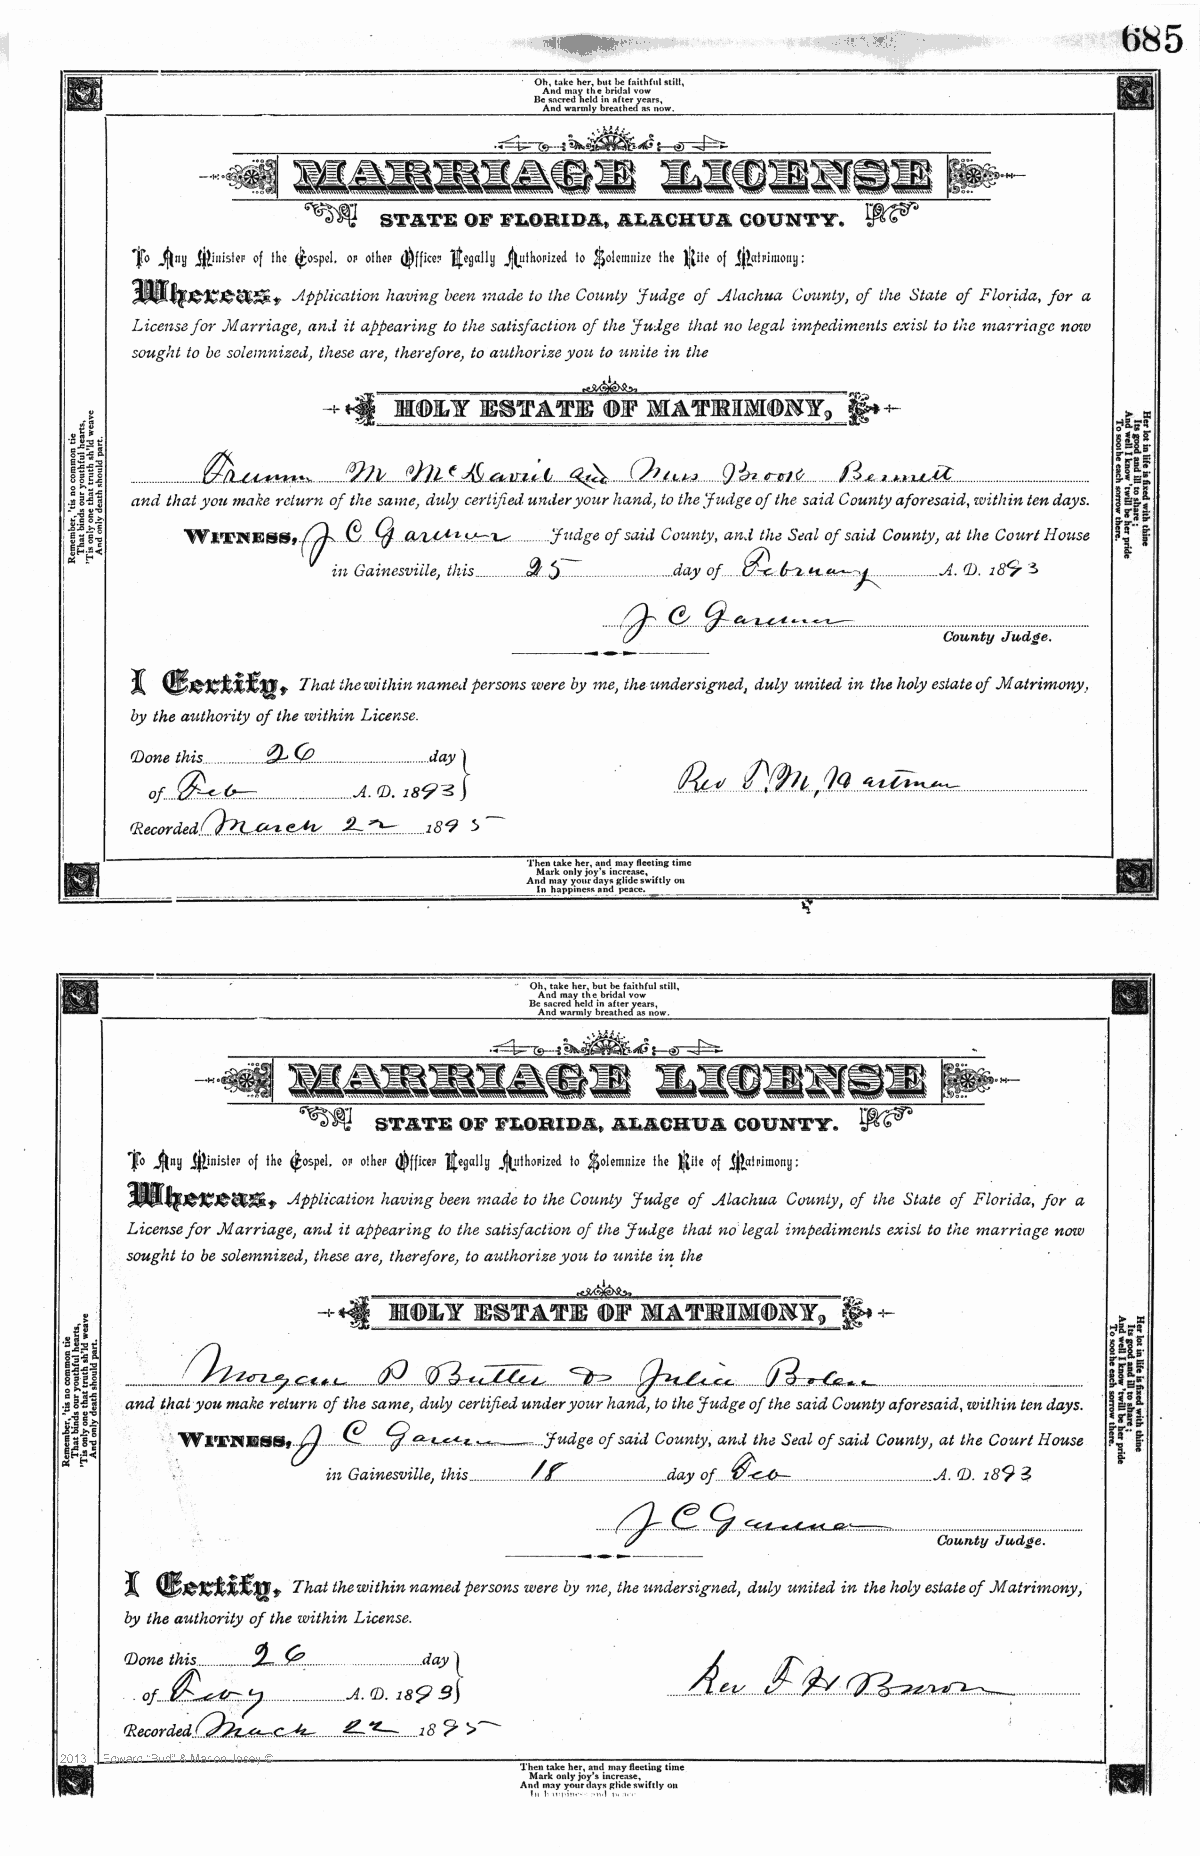 685
Oh, take her, but be faithful still,
And may the bridal vow
Be sacred held in after years,
And warmly breathed as now.
MARRIAGE LICENSE
STATE OF FLORIDA, ALACHUA COUNTY.
To Any Minister of the Gospel, or other Officer Legally Authorized to Solemnize the Rite of Matrimony:
Whereas, Application having been made to the County Judge of Alachua County, of the State of Florida, for a
License for Marriage, and it appearing to the satisfaction of the Judge that no legal impediments exist to the marriage now
sought to be solemnized, these are, therefore, to authorize you to unite in the
HOLY ESTATE OF MATRIMONY,
M McDavid and Miss Brook Bennett
and that you make return of the same, duly certified under your hand, to the Judge of the said County aforesaid, within ten days.
WITNESS, J C Gardner Judge of said County, and the Seal of said County, at the Court House
in Gainesville, this 25 day of February A. D. 1893
J C Gardner
County Judge.
I Certify, That the within named persons were by me, the undersigned, duly united in the holy estate of Matrimony,
by the authority of the within License.
Done this 26 day
of Feb A. D. 1893
Rev T. M. Hartman
Recorded March 22 1895
Remember, 'tis no common tie
That binds our youthful hearts,
'Tis only one that truth sh'ld weave
And only death should part.
Her lot in life is fixed with thine
Its good and ill to share;
And well I know 'twill be her pride
To soothe each sorrow there.
Then take her, and may fleeting time
Mark only joy's increase,
And may your days glide swiftly on
In happiness and peace.
Oh, take her, but be faithful still,
And may the bridal vow
Be sacred held in after years,
And warmly breathed as now.
MARRIAGE LICENSE
STATE OF FLORIDA, ALACHUA COUNTY.
To Any Minister of the Gospel, or other Officer Legally Authorized to Solemnize the Rite of Matrimony:
Whereas, Application having been made to the County Judge of Alachua County, of the State of Florida, for a
License for Marriage, and it appearing to the satisfaction of the Judge that no legal impediments exist to the marriage now
sought to be solemnized, these are, therefore, to authorize you to unite in the
HOLY ESTATE OF MATRIMONY,
Morgan P Butler & Julia Bolen
and that you make return of the same, duly certified under your hand, to the Judge of the said County aforesaid, within ten days.
WITNESS, J C Gardner Judge of said County, and the Seal of said County, at the Court House
in Gainesville, this 18 day of Feb A. D. 1893
J C Gardner
County Judge.
I Certify, That the within named persons were by me, the undersigned, duly united in the holy estate of Matrimony,
by the authority of the within License.
Done this 26 day
of Feby A. D. 1893
Rev F H
Recorded March 22 1895
Remember, 'tis no common tie
That binds our youthful hearts,
'Tis only one that truth sh'ld weave
And only death should part.
Her lot in life is fixed with thine
Its good and ill to share;
And well I know 'twill be her pride
To soothe each sorrow there.
2013 Edward "Bud" & Marion Josey ©
Then take her, and may fleeting time
Mark only joy's increase,
And may your days glide swiftly on
In happiness and peace